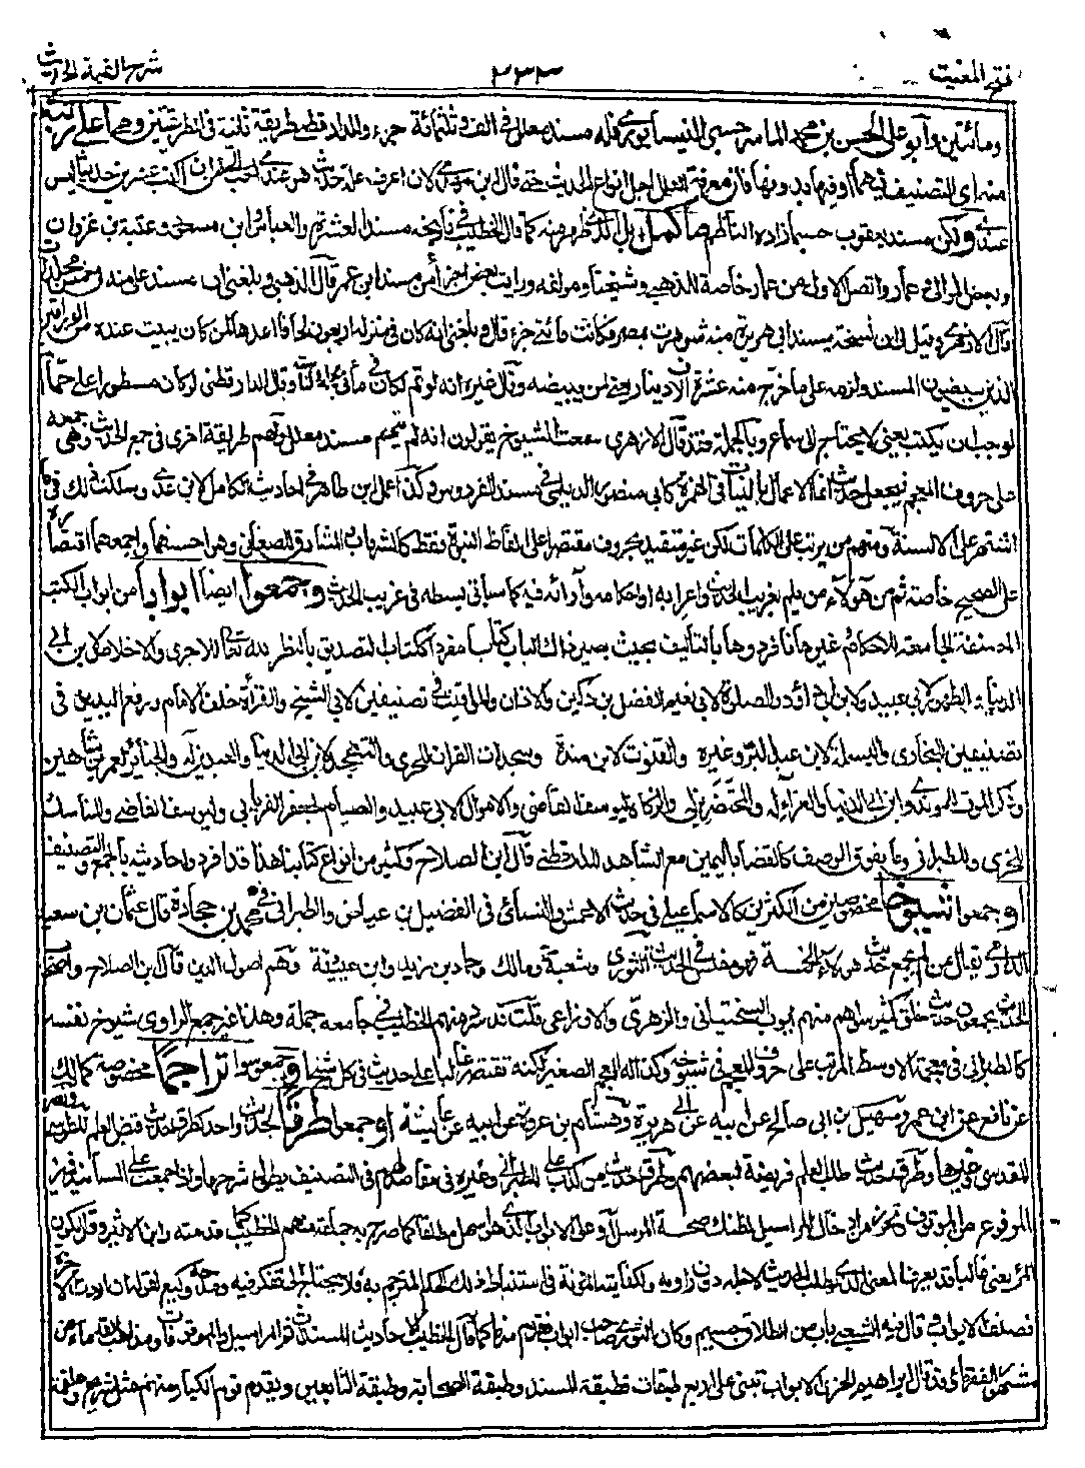 فتح المغيث
٢٣٣
شرح الفية الحديث
ومائتين وأبو علي الحسن بن محمد الماسرجسي النيسابوري فله مسند معلل في الف وثلثمائة جزء والدارقطني طريقة ثلثة في انظر شيئين وهي أعلى رتبة
منه اي التصنيف فيهما أو فيه ابد ونها فان معرفة العلل اجل انواع الحديث حتى قال ابن مهدي لان اعرف علة حديث هو عندي احب الي من ان اكتب عشرين حديثا ليس
عندي ولكن مسند يعقوب حسبما زاده الناظم ما كمل بل الذي ظهر منه كما قال الخطيب في تاريخه مسند العشرة والعباس وابن مسعود وعتبة بن غزوان
وبعض الموالي وعمار واتصل الاول من عمار خاصة للذهبي وشيخنا ومؤلفه ورايت بعض اجزاء من مسند ابن عمر قال الذهبي وبلغني ان مسند علي منه في خمس مجلدات
قال الازهري وقيل لي ان نسخة بمسند ابي هريرة منه شوهدت بمصر فكانت مائتي جزء قال وبلغني انه كان في منزله اربعون لحافا اعدها لمن كان يبيت عنده من الوراقين
الذين يبيضون المسند ولزمه على ما خرج منه عشرة الاف دينار يعني لمن يبيضه وقال غيره انه لو تم لكان في مائتي مجلد وقال الدارقطني لو كان مسطورا على حمام
لوجب ان يكتب يعني لا يحتاج الى سماع وبالجملة فقد قال الازهري سمعت الشيوخ يقولون انه لم يتمم مسند معلل ولهم طريقة اخرى في جمع الحديث وهي جمعه
على حروف المعجم فيجعل حديث انما الاعمال بالنيات في الهمزة كابي منصور الديلمي في مسند الفردوس وكذا عمل ابن طاهر في احاديث الكامل لابن عدي وسلكت ذلك في ما
اشتهر على الالسنة ومنهم من يرتب على الكلمات لكن غير متقيد بحروف مقتصرا على الفاظ النبوة فقط كالشهاب والمشارق للصغاني وهو احسنهما واجمعهما اقتصاره
على الصحيح خاصة ثم من هؤلاء من يلم بغريب الحديث واعرابه او احكامه وآرائه فيه كما سيأتي بسطه في غريب الحديث وجمعوا ايضا ابوابا من ابواب الكتب
المصنفة الجامعة للاحكام وغيرها فافردوها بالتأليف بحيث يصير ذلك الباب كتابا مفردا ككتاب التصديق بالنظر لله تعالى للآجري والاخلاص لابن ابي
الدنيا والطهور لابي عبيد ولابن ابي داؤد والصلوة لابي نعيم الفضل بن دكين والاذان والمواقيت في تصنيفين لابي الشيخ والقراءة خلف الامام ورفع اليدين في
تصنيفين للبخاري والبسملة لابن عبد البر وغيره والقنوت لابن مندة وسجدات القرآن للحربي والتهجد لابن ابي الدنيا والعيدين له والجنائز لعمر بن شاهين
وذكر الموت للمروذي وابن ابي الدنيا والعزاء له والمحتضرين له والزكاة ليوسف القاضي والاموال لابي عبيد والصيام لجعفر الفريابي وليوسف القاضي والمناسك
للحربي والطبراني وما يفوق الوصف كالقضا باليمين مع الشاهد للدارقطني قال ابن الصلاح وكثير من انواع كتابنا هذا قد افردوا احاديثه بالجمع والتصنيف
أو جمعوا شيوخا مخصوصين من المكثرين كالاسماعيلي في حديث الاعمش والنسائي في الفضيل بن عياض والطبراني في محمد بن جحادة قال عثمان بن سعيد
الدارمي يقال من لم يجمع حديث هؤلاء الخمسة فهو مفلس في الحديث الثوري وشعبة ومالك وحماد بن زيد وابن عيينة وهم اصول الدين قال ابن الصلاح واصحاب
الحديث يجمعون حديث خلق كثير سواهم منهم ايوب السختياني والزهري والاوزاعي قلت قد سرد منهم الخطيب في جامعه جملة وهذا غير جمع الراوي شيوخ نفسه
كالطبراني في معجمه الاوسط المرتب على حروف المعجم في شيوخه وكذا له المعجم الصغير لكنه يقتصر غالبا على حديث في كل شيخ او جمعوا تراجما مخصوصة كمالك
عن نافع عن ابن عمر وسهيل بن ابي صالح عن ابيه عن ابي هريرة وهشام بن عروة عن ابيه عن عائشة أو جمعوا طرقا لحديث واحد كطرق حديث قبض العلم للطوسي ونصر
المقدسي وغيرهما وطرق حديث طلب العلم فريضة لبعضهم وطرق حديث من كذب علي للطبراني وغيره في مقاصد لهم في التصنيف يطول شرحها واذا جمعت على المسانيد فميز
المرفوع من الموقوف وتحرز من ادخال المراسيل لظنك صحبة المرسل أو على الابواب الذي هو اسهل مطلقا كما صرح به جماعة منهم الخطيب كما قدمته وابن الاثير وقال لكون
المرء يعني غالبا قد يعرف المعنى الذي يطلب الحديث لاجله دون راويه ولكفايته المؤنة في استنباط ذلك الحكم المترجم به فلا يحتاج الى تفكر فيه وحثه وكيع لقوله ان اردت الاخرة
فصنف الابواب وقال فيه الشعبي باب من الطلاق جسيم وكان الثوري صاحب ابواب فقدم منها كما قال الخطيب الاحاديث المسندات ثم المراسيل والموقوفات ومذاهب القدماء من
مشهوري الفقهاء فقد قال ابراهيم الحربي الابواب تبنى على اربع طبقات فطبقة المسند وطبقة الصحابة وطبقة التابعين ويقدم قوم الكبار منهم مثل شريح وعلقمة